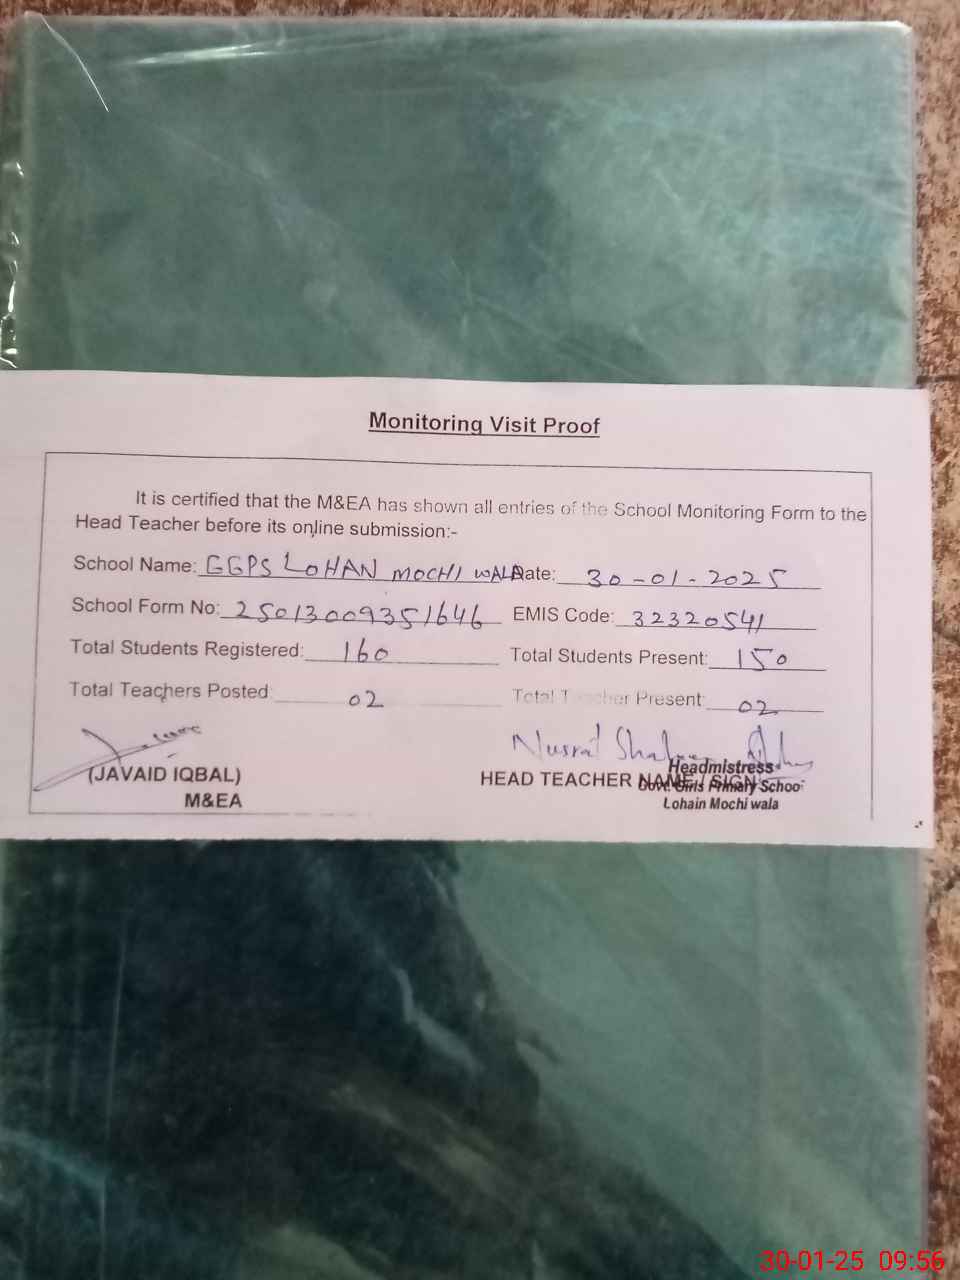 Monitoring Visit Proof
It is certified that the M&EA has shown all entries of the School Monitoring Form to the
Head Teacher before its online submission:-
School Name: GGPS LOHAN MOCHI WALA Date: 30-01-2025
School Form No: 25013009351646 EMIS Code: 32320541
Total Students Registered: 160 Total Students Present: 150
Total Teachers Posted: 02 Total Teacher Present: 02
Nusrat
(JAVAID IQBAL) HEAD TEACHER NAME / SIGN
M&EA
Headmistress
Govt. Girls Primary School
Lohain Mochi wala
30-01-25 09:56